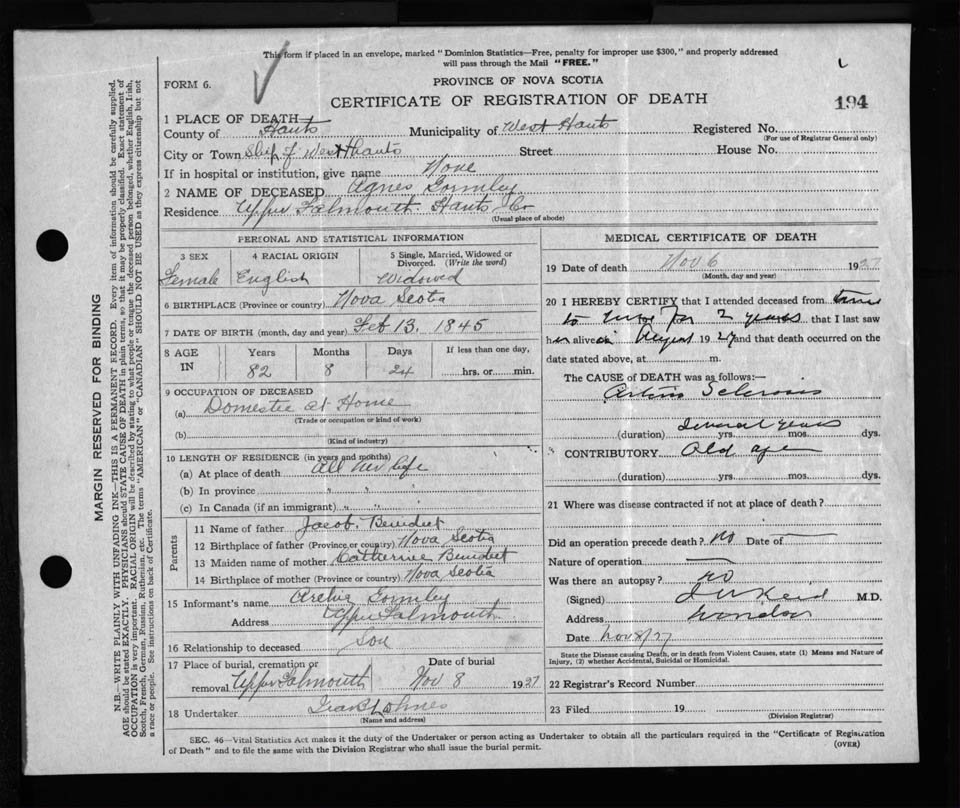 This form if placed in an envelope, marked "Dominion Statistics—Free, penalty for improper use $300," and properly addressed
will pass through the Mail "FREE."
FORM 6.
PROVINCE OF NOVA SCOTIA
CERTIFICATE OF REGISTRATION OF DEATH
194
1 PLACE OF DEATH
County of Hants Municipality of West Hants Registered No.
(For use of Registrar General only)
City or Town West Hants Street House No.
If in hospital or institution, give name None
2 NAME OF DECEASED Agnes Gormley
Residence Upper Falmouth Hants Co
(Usual place of abode)
PERSONAL AND STATISTICAL INFORMATION
3 SEX 4 RACIAL ORIGIN 5 Single, Married, Widowed or
Divorced. (Write the word)
Female English Widowed
6 BIRTHPLACE (Province or country) Nova Scotia
7 DATE OF BIRTH (month, day and year) Feb 13, 1845
8 AGE Years Months Days If less than one day,
IN 82 8 24 hrs. or min.
9 OCCUPATION OF DECEASED
(a) Domestic at Home
(Trade or occupation or kind of work)
(b)
(Kind of industry)
10 LENGTH OF RESIDENCE (in years and months)
(a) At place of death All her life
(b) In province " "
(c) In Canada (if an immigrant) " "
Parents
11 Name of father Jacob Benedict
12 Birthplace of father (Province or country) Nova Scotia
13 Maiden name of mother Catherine Benedict
14 Birthplace of mother (Province or country) Nova Scotia
15 Informant's name Gormley
Address Upper Falmouth
16 Relationship to deceased Son
17 Place of burial, cremation or Date of burial
removal Upper Falmouth Nov 8 1927
18 Undertaker
(Name and address)
MEDICAL CERTIFICATE OF DEATH
19 Date of death Nov 6 1927
(Month, day and year)
20 I HEREBY CERTIFY that I attended deceased from time
to time for 2 years that I last saw
her alive on August 1927 and that death occurred on the
date stated above, at m.
The CAUSE of DEATH was as follows:—
Sclerosis
several years
(duration) yrs. mos. dys.
CONTRIBUTORY Old age
(duration) yrs. mos. dys.
21 Where was disease contracted if not at place of death?
Did an operation precede death? No Date of
Nature of operation
Was there an autopsy? no
(Signed) M.D.
Address Windsor
Date Nov 8/27
State the Disease causing Death, or in death from Violent Causes, state (1) Means and Nature of
Injury, (2) whether Accidental, Suicidal or Homicidal.
22 Registrar's Record Number
23 Filed 19
(Division Registrar)
SEC. 46—Vital Statistics Act makes it the duty of the Undertaker or person acting as Undertaker to obtain all the particulars required in the "Certificate of Registration
of Death" and to file the same with the Division Registrar who shall issue the burial permit.
(OVER)
MARGIN RESERVED FOR BINDING
N.B.—WRITE PLAINLY WITH UNFADING INK—THIS IS A PERMANENT RECORD. Every item of information should be carefully supplied.
AGE should be stated EXACTLY. PHYSICIANS should STATE CAUSE OF DEATH in plain terms, so that it may be properly classified. Exact statement of
OCCUPATION is very important. RACIAL ORIGIN will be described by stating to what people or tongue the deceased person belonged, whether English, Irish,
Scotch, French, German, Russian, Ruthenian, etc. The terms "AMERICAN" or "CANADIAN" SHOULD NOT BE USED as they express citizenship but not
a race or people. See instructions on back of Certificate.